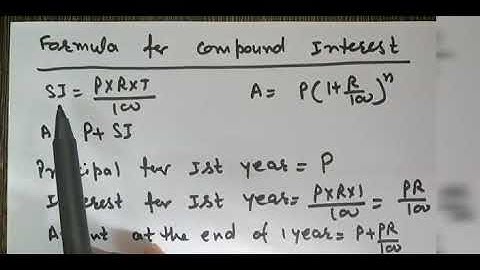 Formula for Compound Interest
SI = P×R×T/100 A = P(1+R/100)^n
A P + SI
for Ist year = P
for Ist year = P×R×1/100 = PR/100
at the end of 1 year = P + PR/100